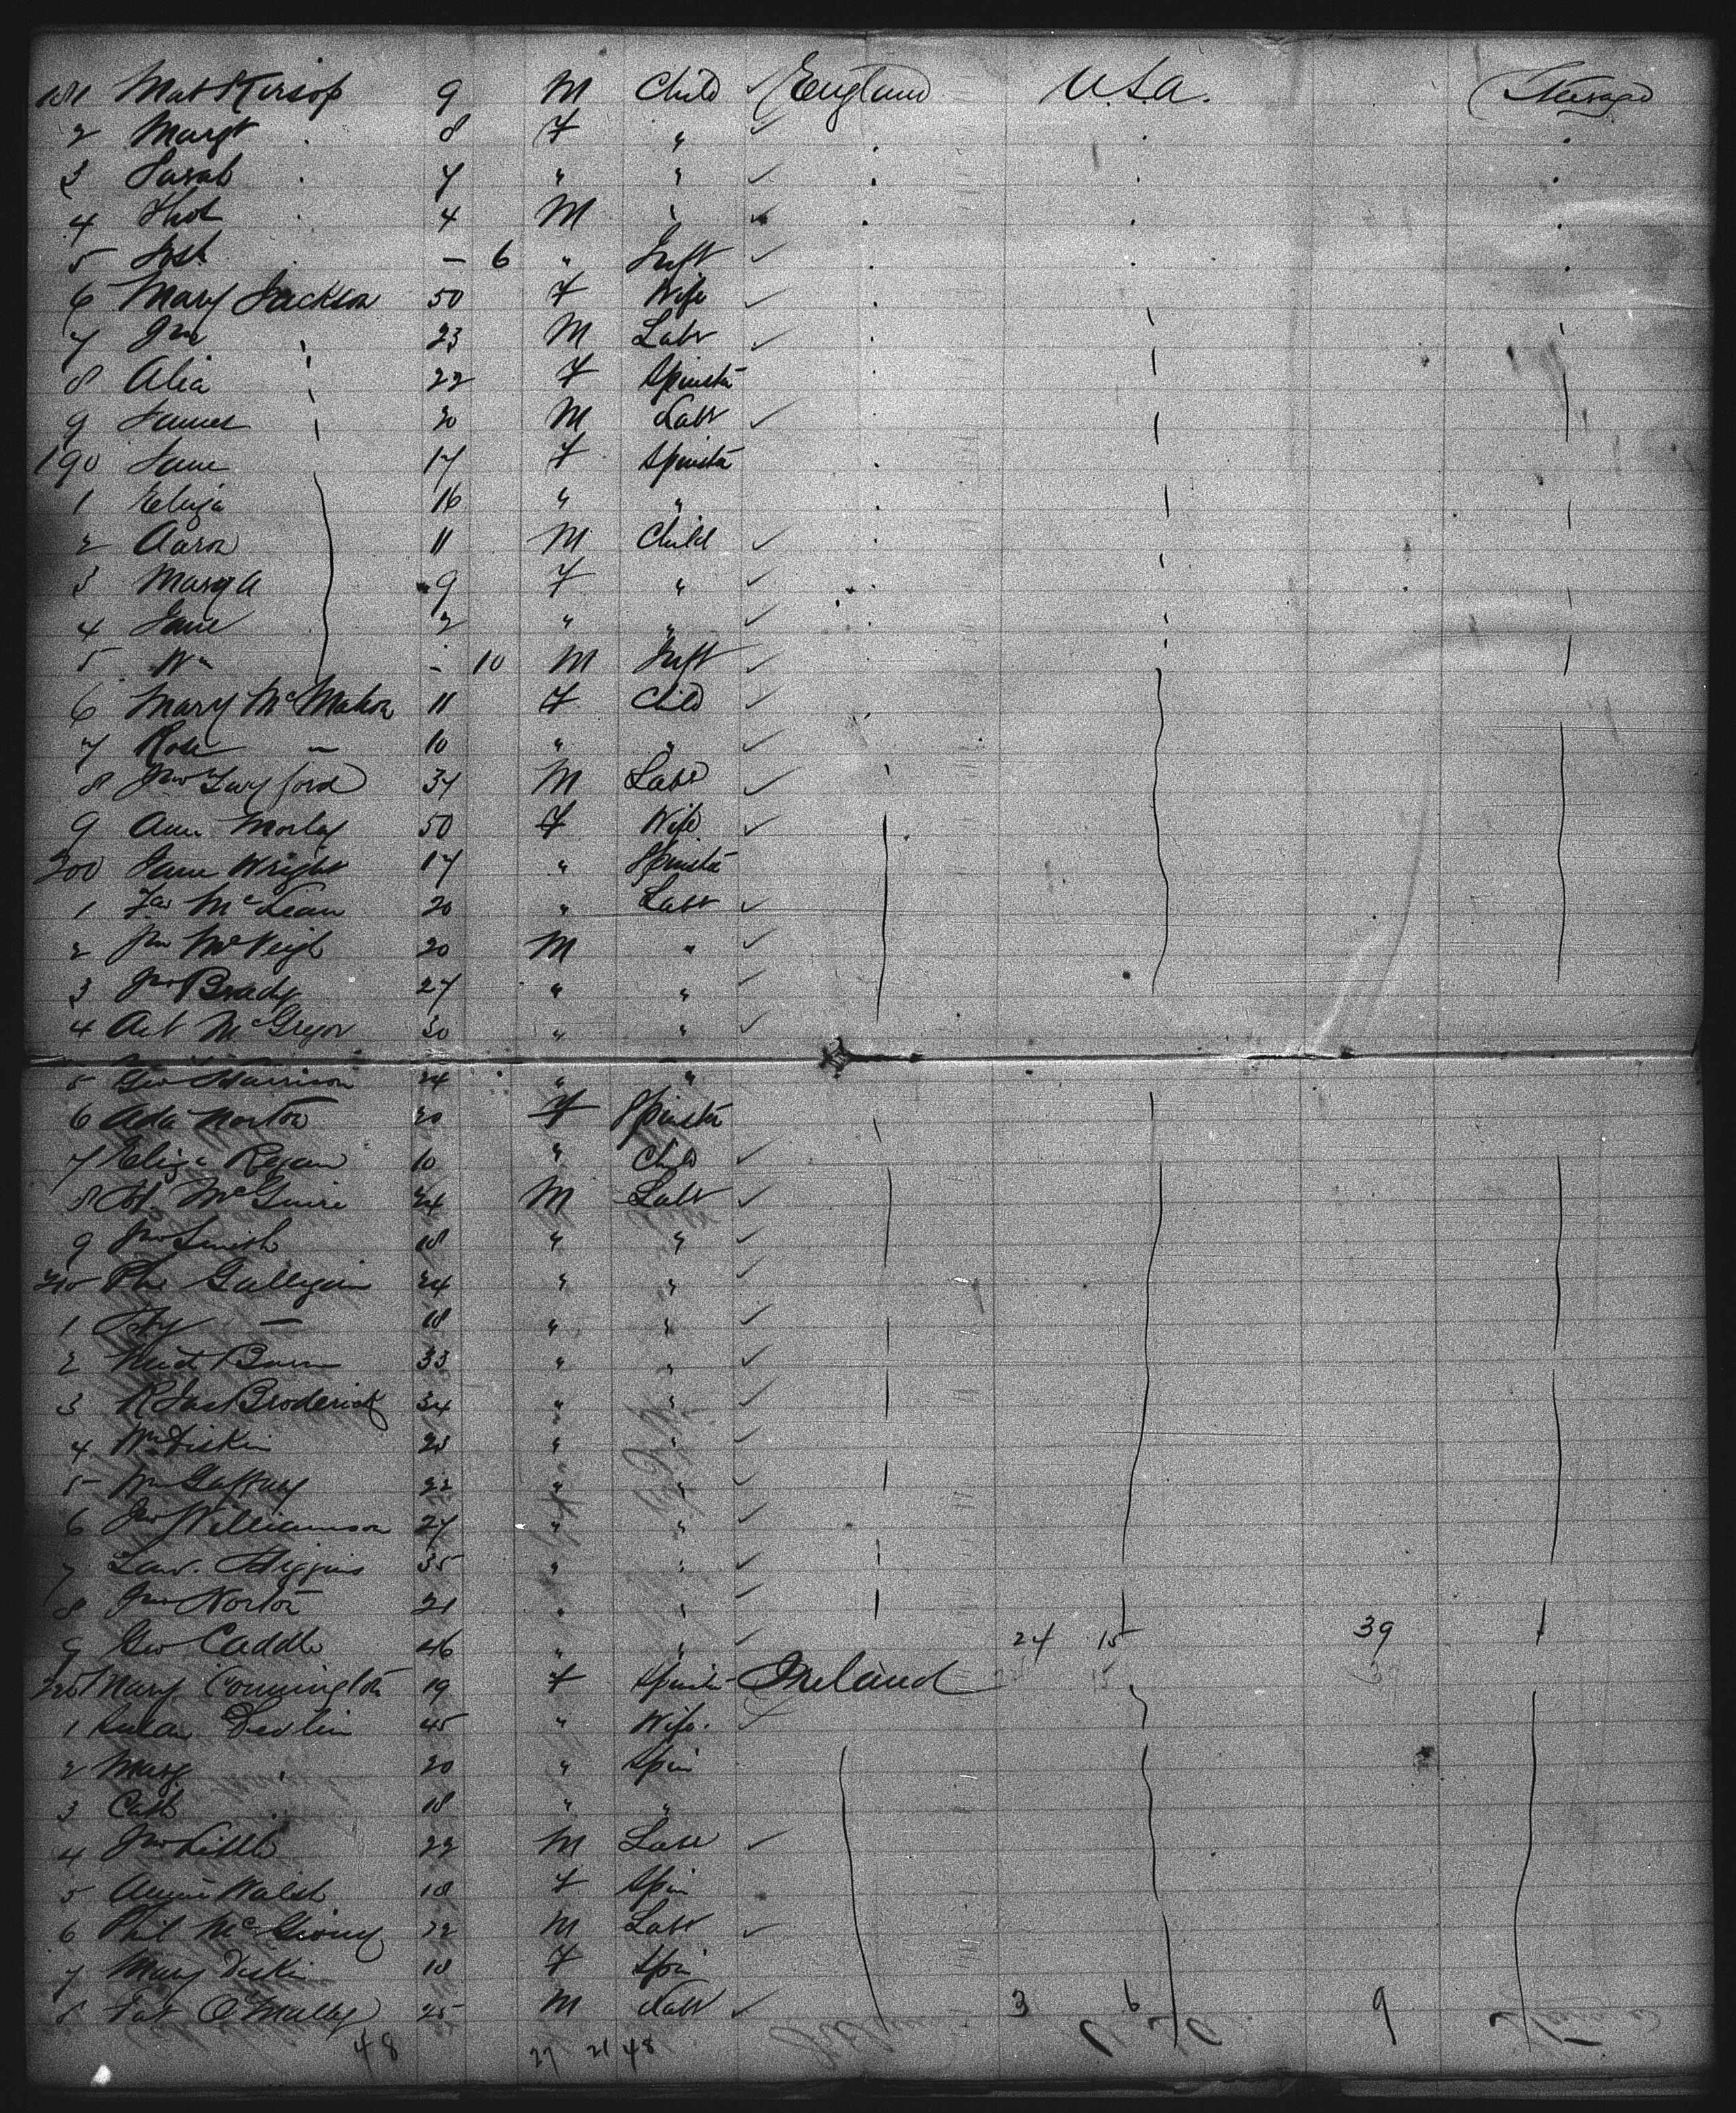 181 Mat Kirsop 9 M Child ✓ England U.S.A. Steerage
2 Margt . 8 F " ✓ . . .
3 Sarah . 7 " " ✓ . . .
4 Thos . 4 M " ✓ . . .
5 Jos . - 6 " Inft ✓ . . .
6 Mary Jackson 50 F Wife ✓
7 Jno 23 M Labr ✓
8 Alia 22 F Spinstr
9 James 20 M Labr ✓
190 Jane 17 F Spinstr
1 Eliza 16 " "
2 Aaron 11 M Child ✓
3 Mary A 9 F " ✓
4 Jane 2 " " ✓
5 Wm - 10 M Inft ✓
6 Mary McMahon 11 F Child ✓
7 Rose — 10 " " ✓
8 Jno Twyford 34 M Labr ✓
9 Ann Morley 50 F Wife ✓
200 Jane Wright 17 " Spinstr
1 Jas McLean 20 " Labr ✓
2 Jno McVeigh 20 M " ✓
3 Jno Brady 27 " " ✓
4 Art McGregor 30 " " ✓
5 Geo Harrison 24 " "
6 Ada Norton 20 F Spinstr
7 Eliza Regan 10 " Child ✓
8 McGuire 24 M Labr ✓
9 Jno Smith 18 " " ✓
210 Phi Galligan 24 " " ✓
1 — 18 " " ✓
2 33 " " ✓
3 R Jas Broderick 34 " " ✓
4 Wm Diskin 28 " " ✓
5 Wm Gaffney 22 " " ✓
6 Jno Williamson 27 " " ✓
7 Law. Higgins 35 " " ✓
8 Jno Norton 21 " " ✓
9 Geo Caddle 46 " " ✓ 24 15 39
220 Mary Connington 19 F Spinstr Ireland
1 Devlin 45 " Wife. ✓
2 Marg . 20 " Spin
3 Cath . 18 " "
4 Jno Little 22 M Labr ✓
5 Annie Walsh 18 F Spin
6 Phil 22 M Labr ✓
7 Mary Diskin 18 F Spin
8 Pat O'Malley 25 M Labr ✓ 3 6 9
48 27 21 48